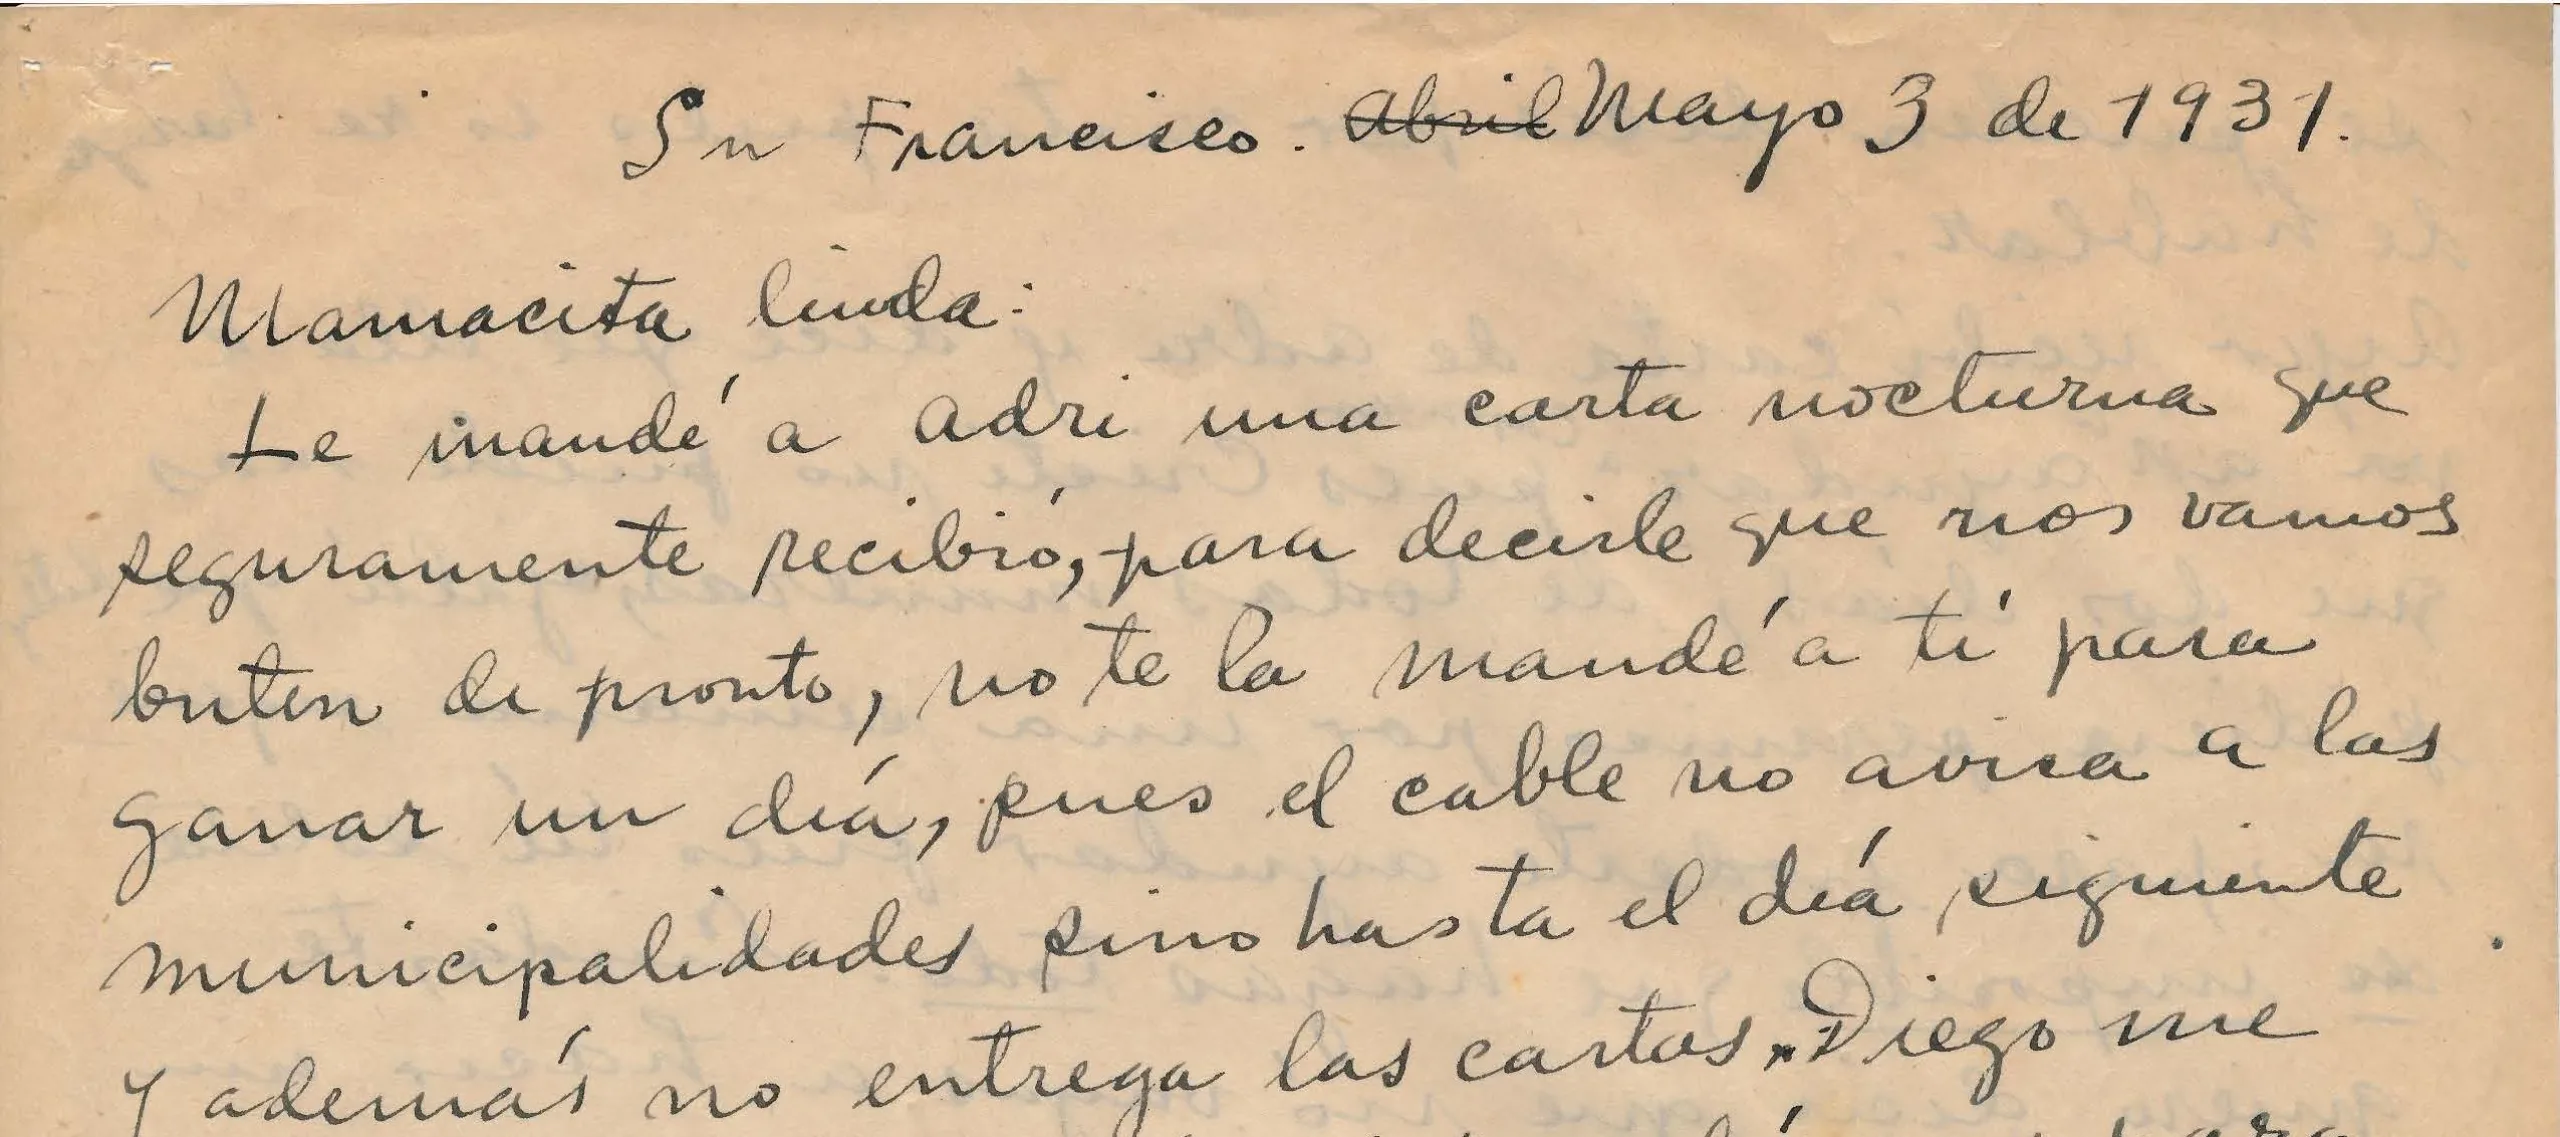 Sn Francisco. Abril Mayo 3 de 1931.
Mamacita linda:
Le mandé a Adri una carta nocturna que
seguramente recibió, para decirle que nos vamos
buten de pronto, no te la mandé a tí para
ganar un día, pues el cable no avisa a las
municipalidades sino hasta el día siguiente
y además no entrega las cartas. Diego me